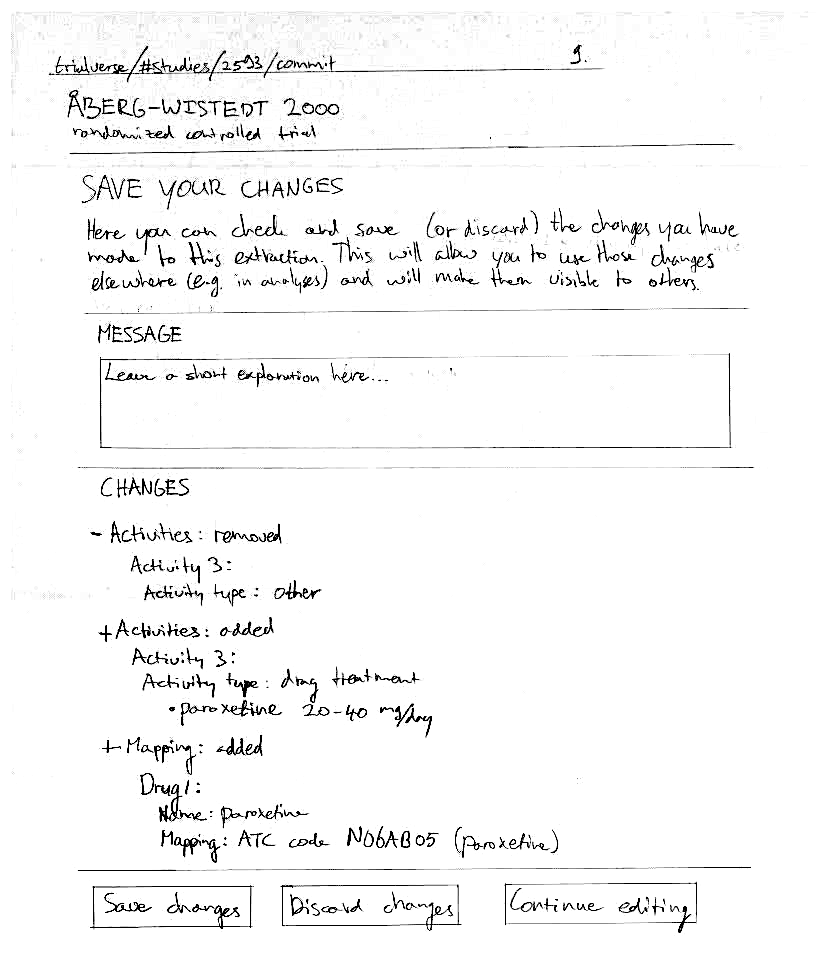 trialverse/#studies/2593/commit 9.
ÅBERG-WISTEDT 2000
randomized controlled trial
SAVE YOUR CHANGES
Here you can check and save (or discard) the changes you have
made to this extraction. This will allow you to use those changes
elsewhere (e.g. in analyses) and will make them visible to others.
MESSAGE
Leave a short explanation here...
CHANGES
- Activities: removed
Activity 3:
Activity type: other
+ Activities: added
Activity 3:
Activity type: drug treatment
• paroxetine 20-40 mg/day
+ Mapping: added
Drug 1:
Name: paroxetine
Mapping: ATC code N06AB05 (paroxetine)
Save changes Discard changes Continue editing